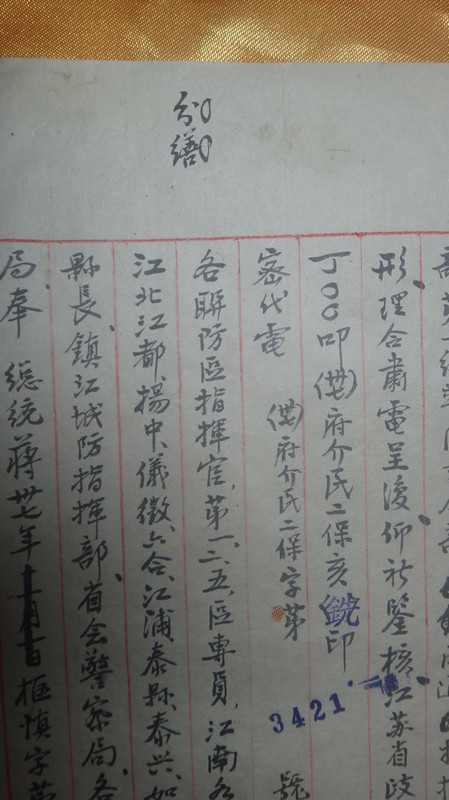 別繕
形、理合肅電呈復、仰祈鑒核、江苏省政
丁〇〇叩(卅七)府介民二保亥(銑)印
密代電 (卅七)府介民二保字第 3421 號
各聯防區指揮官、第一、二、五、區專員、江南各
江北江都、揚中、儀徵、六合、江浦、泰縣、泰兴、如
縣長、鎮江城防指揮部、省会警察局、各
局、奉 總統蔣卅七年 樞慎字第